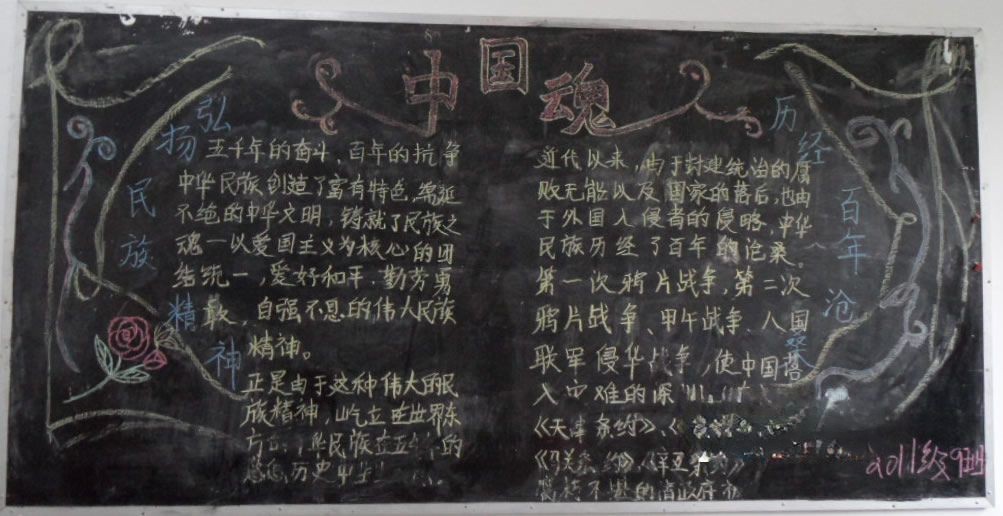 中国魂
弘扬民族精神
五千年的奋斗、百年的抗争
中华民族创造了富有特色,绵延
不绝的中华文明,铸就了民族之
魂一以爱国主义为核心的团
结统一,爱好和平、勤劳勇
敢,自强不息的伟大民族
精神。
正是由于这种伟大的民
族精神,屹立在世界东
方
华民族
的
历史
历经百年沧桑
近代以来,由于封建统治的腐
败无能以及国家的落后,也由
于外国入侵者的侵略,中华
民族历经了百年的沧桑。
第一次鸦片战争,第二次
鸦片战争、甲午战争、八国
联军侵华战争,使中国落
入灾难的深
《天津条约》、《
《马关条约》《辛丑条约》
不堪的清政府
2011级9班